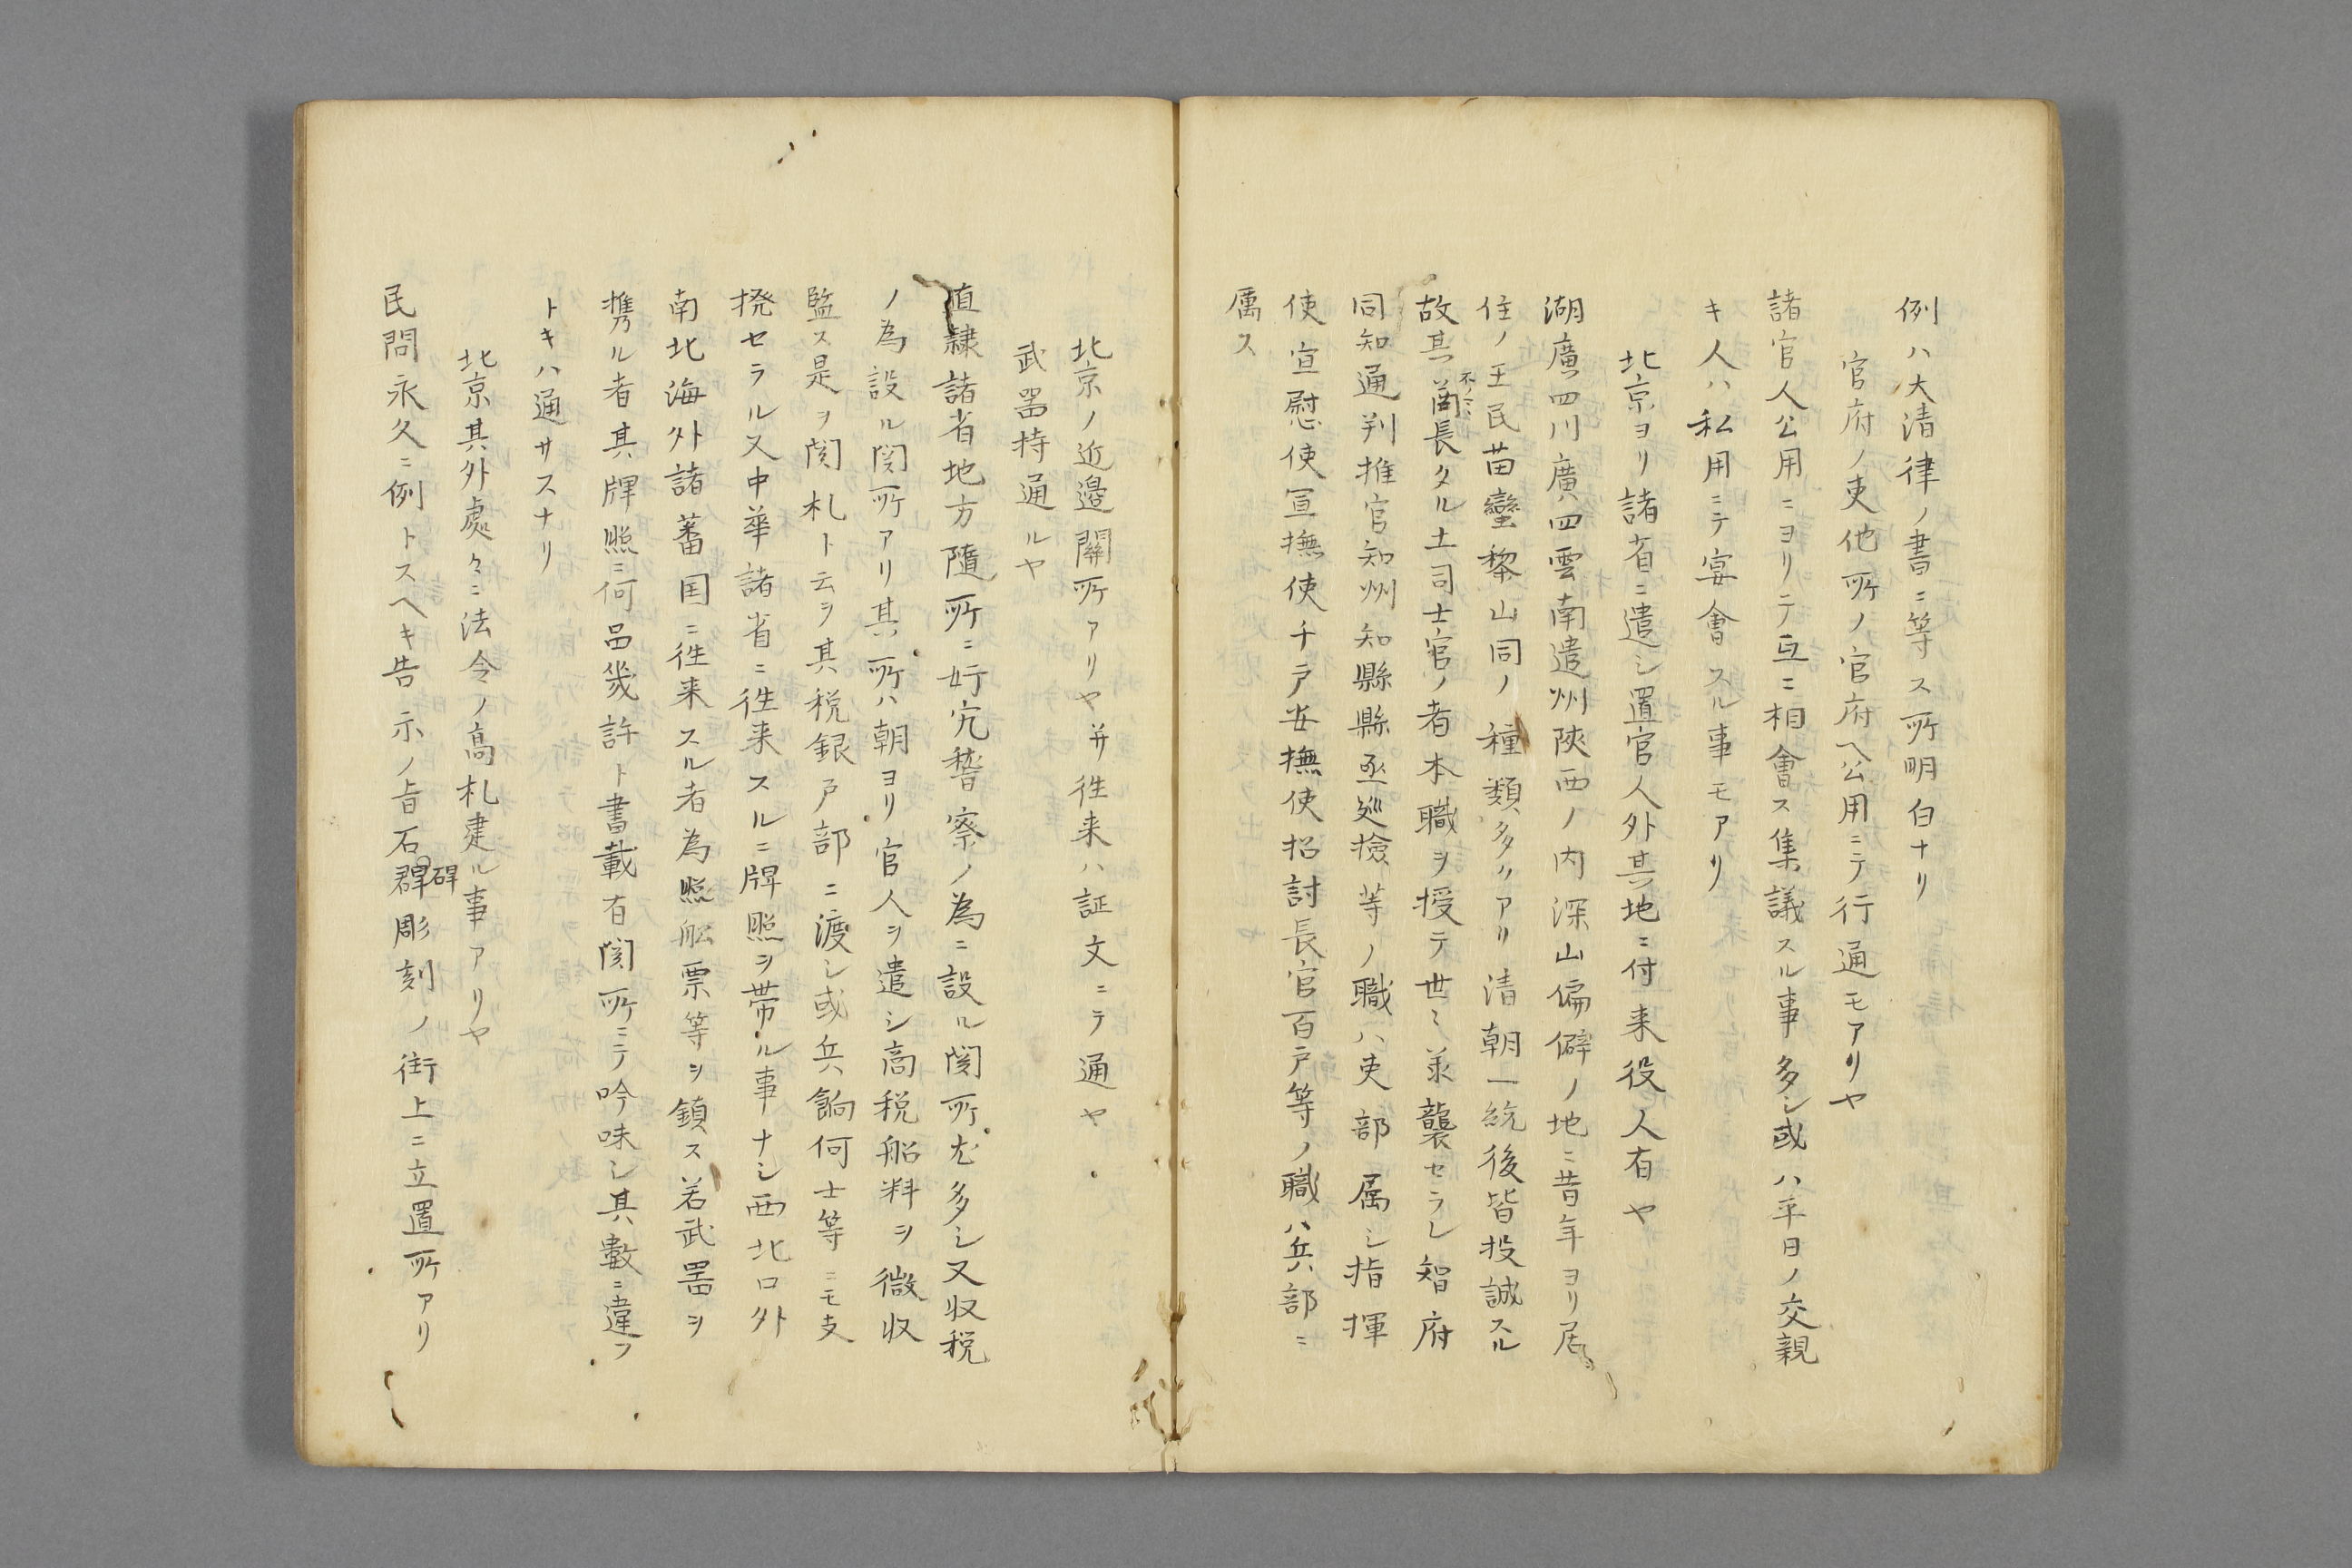 例ハ大清律ノ書ニ等ス所明白ナリ
官府ノ吏他所ノ官府ヘ公用ニテ行通モアリヤ
諸官人公用ニヨリテ互ニ相會ス集議スル事多シ或ハ平日ノ交親
キ人ハ私用ニテ宴會スル事モアリ
北京ヨリ諸省ニ遣シ置官人外其地ニ付来役人有ヤ
湖廣四川廣四雲南遣州陝西ノ内深山偏僻ノ地ニ昔年ヨリ居
住ノ王民苗蠻黎山同ノ種類多クアリ清朝一統後皆投誠スル
故其酋長タル土司士官ノ者本職ヲ授テ世〻承襲セラレ智府
同知通判推官知州知縣縣丞巡撿等ノ職ハ吏部属シ指揮
使宣慰使宣撫使千戸安撫使招討長官百戸等ノ職ハ兵部ニ
属ス
北京ノ近邉關所アリヤ并徃来ハ証文ニテ通ヤ
武噐持通ルヤ
直隷諸省地方隨所ニ奸宄稽察ノ為ニ設ル関所尤多シ又収税
ノ為設ル関所アリ其所ハ朝ヨリ官人ヲ遣シ高税船料ヲ徴収
監ス是ヲ関札ト云ヲ其税銀戸部ニ渡シ或兵餉何士等ニモ支
撥セラル又中華諸省ニ徃来スルニ牌照ヲ帯ル事ナシ西北口外
南北海外諸蕃国ニ徃来スル者為照舩票等ヲ鎮ス若武噐ヲ
携ル者其牌照ニ何品幾許ト書載有関所ニテ吟味シ其數ニ違フ
トキハ通サスナリ
北京其外處々ニ法令ノ高札建ル事アリヤ
民間永久ニ例トスヘキ告示ノ旨石碑彫刻ノ街上ニ立置所アリ